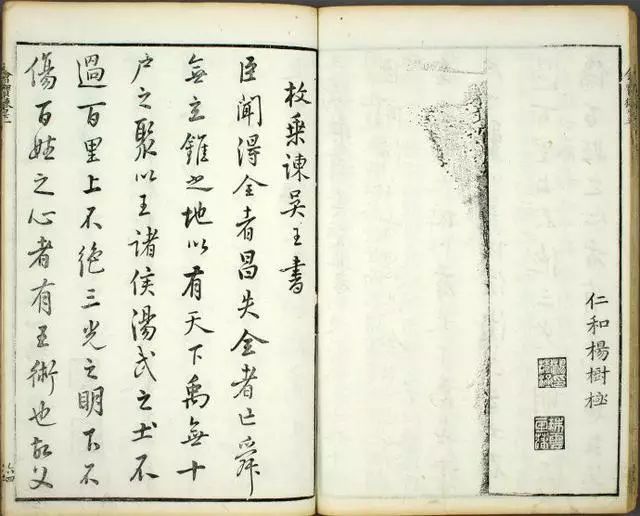 仁和楊樹
枚乘諫吳王書
臣聞得全者昌失全者亡舜
無立錐之地以有天下禹無十
户之聚以王諸侯湯武之土不
過百里上不絶三光之明下不
傷百姓之心者有王術也故父
六四